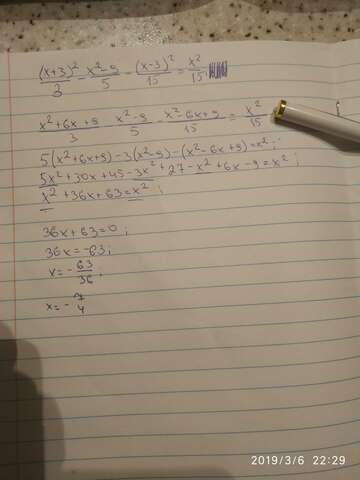 (x+3)²/3 - x²-9/5 - (x-3)²/15 = x²/15
x²+6x+9/3 - x²-9/5 - x²-6x+9/15 = x²/15
5(x²+6x+9)-3(x²-9)-(x²-6x+9)=x²;
5x²+30x+45-3x²+27-x²+6x-9=x²;
x²+36x+63=x²;
36x+63=0;
36x=-63;
x=-63/36;
x=-7/4
2019/3/6 22:29